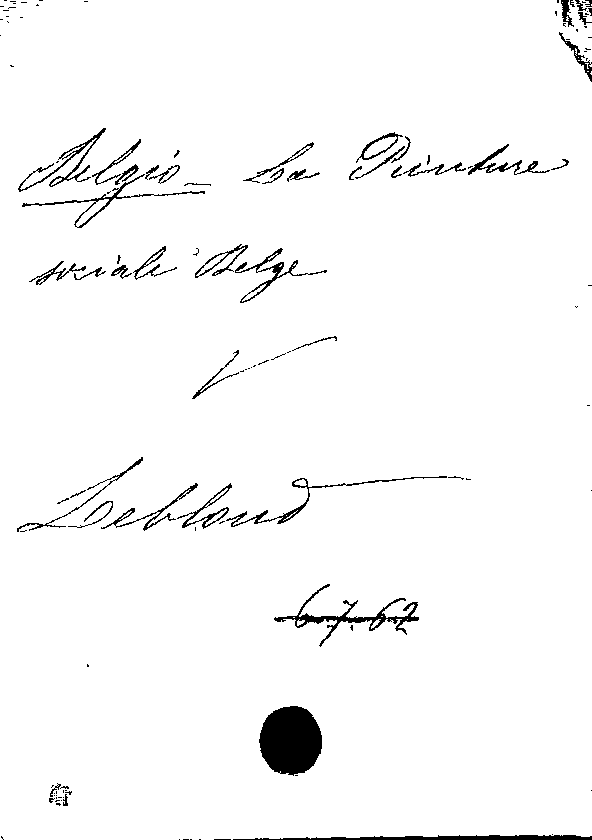 Belgio - La Peinture
sociale Belge
V
Leblond
6.7.62